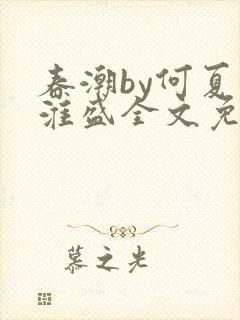 春潮by何夏
淮盛全文免
慕之光